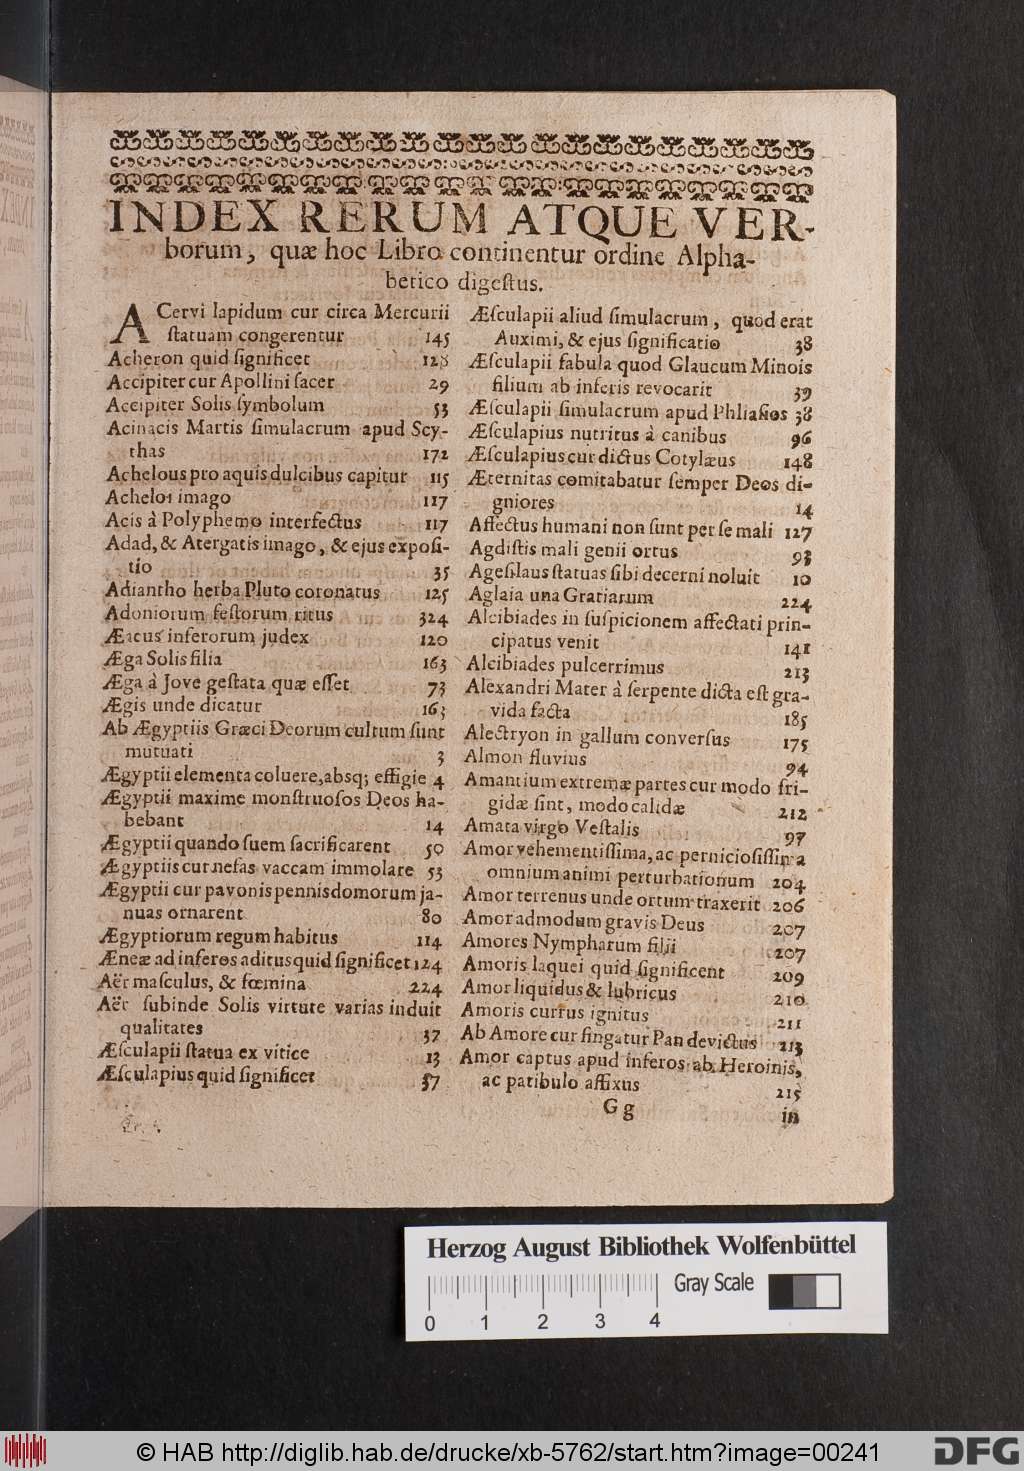 INDEX RERUM ATQUE VER-
borum, quæ hoc Libro continentur ordine Alpha-
betico digeſtus.
ACervi lapidum cur circa Mercurii
ſtatuam congerentur 145
Acheron quid ſignificet 128
Accipiter cur Apollini ſacer 29
Accipiter Solis ſymbolum 53
Acinacis Martis ſimulacrum apud Scy-
thas 172
Achelous pro aquis dulcibus capitur 115
Acheloi imago 117
Acis à Polyphemo interfectus 117
Adad, & Atergatis imago, & ejus expoſi-
tio 35
Adiantho herba Pluto coronatus 125
Adoniorum feſtorum ritus 324
Æacus inferorum judex 120
Æga Solis filia 163
Æga à Jove geſtata quæ eſſet 73
Ægis unde dicatur 163
Ab Ægyptiis Græci Deorum cultum ſunt
mutuati 3
Ægyptii elementa coluere, absq; effigie 4
Ægyptii maxime monſtruoſos Deos ha-
bebant 14
Ægyptii quando ſuem ſacrificarent 50
Ægyptiis cur nefas vaccam immolare 53
Ægyptii cur pavonis pennis domorum ja-
nuas ornarent 80
Ægyptiorum regum habitus 114
Æneæ ad inferos aditus quid ſignificet 124
Aër maſculus, & fœmina 224
Aër ſubinde Solis virtute varias induit
qualitates 37
Æſculapii ſtatua ex vitice 13
Æſculapius quid ſignificet 37
Æſculapii aliud ſimulacrum, quod erat
Auximi, & ejus ſignificatio 38
Æſculapii fabula quod Glaucum Minois
filium ab inferis revocarit 39
Æſculapii ſimulacrum apud Phliaſios 38
Æſculapius nutritus à canibus 96
Æſculapius cur dictus Cotylæus 148
Æternitas comitabatur ſemper Deos di-
gniores 14
Affectus humani non ſunt per ſe mali 127
Agdiſtis mali genii ortus 93
Ageſilaus ſtatuas ſibi decerni noluit 10
Aglaia una Gratiarum 224
Alcibiades in ſuſpicionem affectati prin-
cipatus venit 141
Alcibiades pulcerrimus 213
Alexandri Mater à ſerpente dicta eſt gra-
vida facta 185
Alectryon in gallum converſus 175
Almon fluvius 94
Amantium extremæ partes cur modo fri-
gidæ ſint, modo calidæ 212
Amata virgo Veſtalis 97
Amor vehementiſſima, ac pernicioſiſſima
omnium animi perturbationum 204
Amor terrenus unde ortum traxerit 206
Amor admodum gravis Deus 207
Amores Nympharum filii 207
Amoris laquei quid ſignificent 209
Amor liquidus & lubricus 210
Amoris currus ignitus 211
Ab Amore cur fingatur Pan devictus 213
Amor captus apud inferos ab Heroinis,
ac patibulo affixus 215
G g in
Herzog August Bibliothek Wolfenbüttel
Gray Scale
0 1 2 3 4
© HAB http://diglib.hab.de/drucke/xb-5762/start.htm?image=00241
DFG